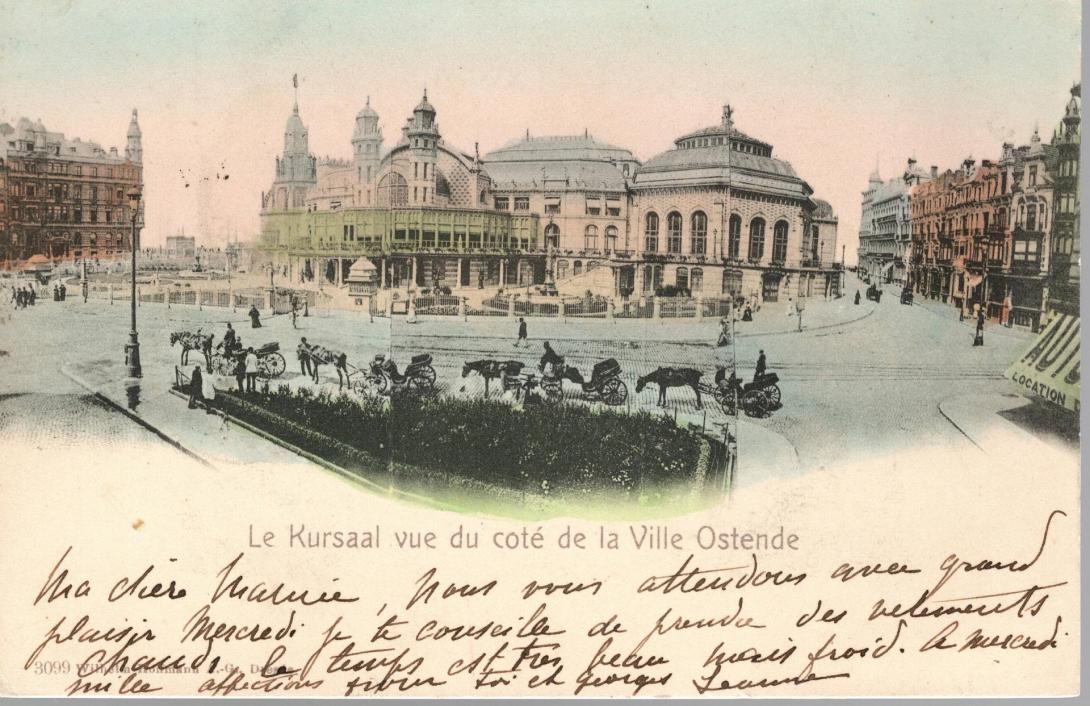 AUTO
LOCATION
Le Kursaal vue du coté de la Ville Ostende
Ma chère Mamie, Nous vous attendons avec grand
plaisir Mercredi je te conseille de prendre des vetements
chauds. le temps est très beau mais froid. A mercredi
mille affections pour toi et georges Jeanne
3099 Wilhelm Hoffmann A.-G., Dresden